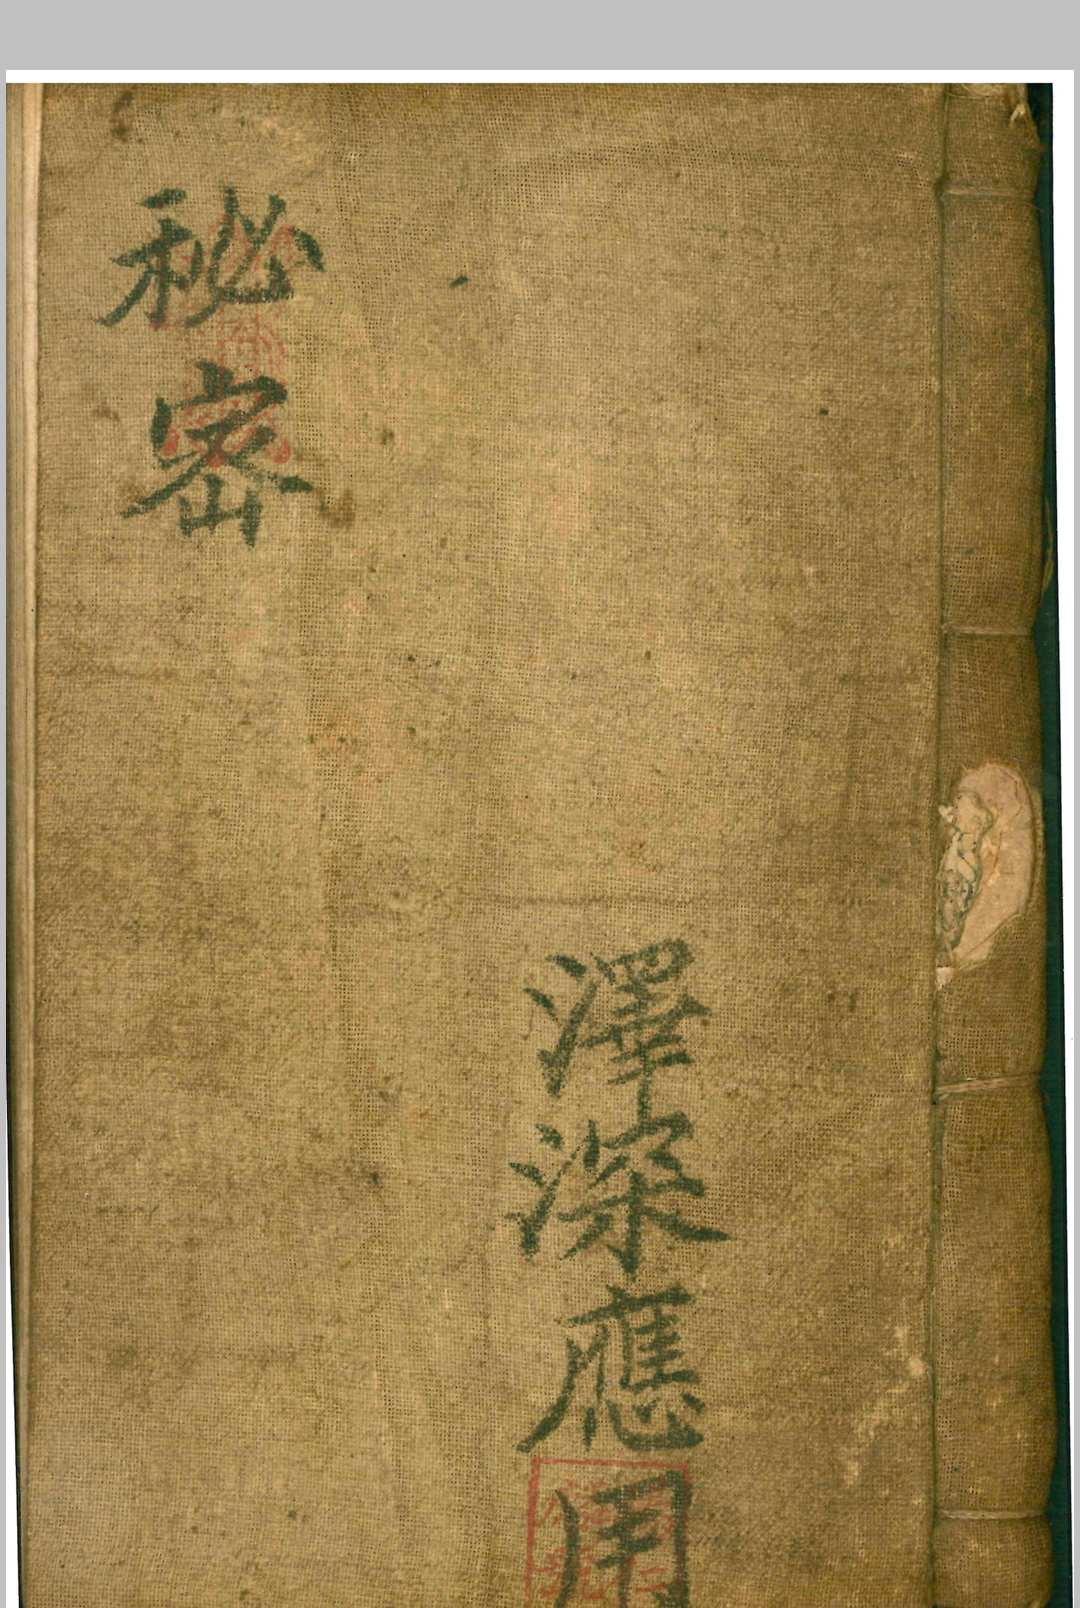 澤深應用
秘密